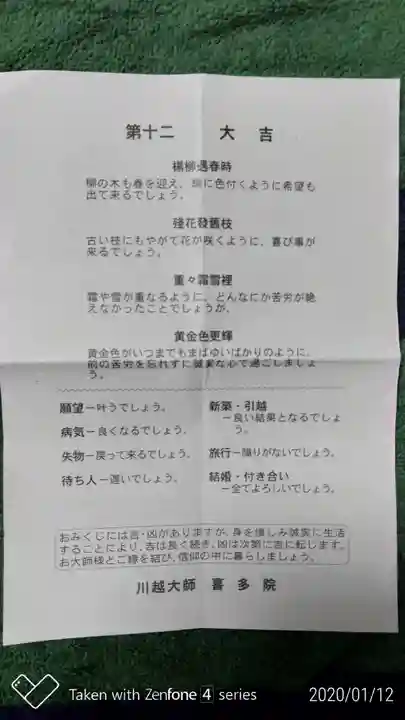 第十二　大　吉
楊柳遇春時
柳の木も春を迎え、緑に色付くように希望も
出て来るでしょう。
殘花發舊枝
古い枝にもやがて花が咲くように、喜び事が
来るでしょう。
重々霜雪裡
霜や雪が重なるように、どんなにか苦労が絶
えなかったことでしょうが、
黄金色更輝
黄金色がいつまでもまばゆいばかりのように、
前の苦労を忘れずに誠実な心で過ごしましょ
う。
願望－叶うでしょう。
病気－良くなるでしょう。
失物－戻って来るでしょう。
待ち人－遅いでしょう。
新築・引越
－良い結果となるでしょ
う。
旅行－障りがないでしょう。
結婚・付き合い
－全てよろしいでしょう。
おみくじには吉・凶がありますが、身を慎しみ誠実に生活
することにより、吉は長く続き、凶は次第に吉に転じます。
お大師様とご縁を結び、信仰の中に暮らしましょう。
川越大師　喜多院
Taken with Zenfone 4 series
2020/01/12